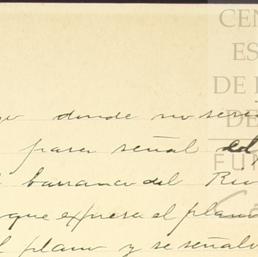 CEN
ES
DE
DE
FUN
donde no
para señal del
barranco del Rio
que expresa el plano
el plano y se señal